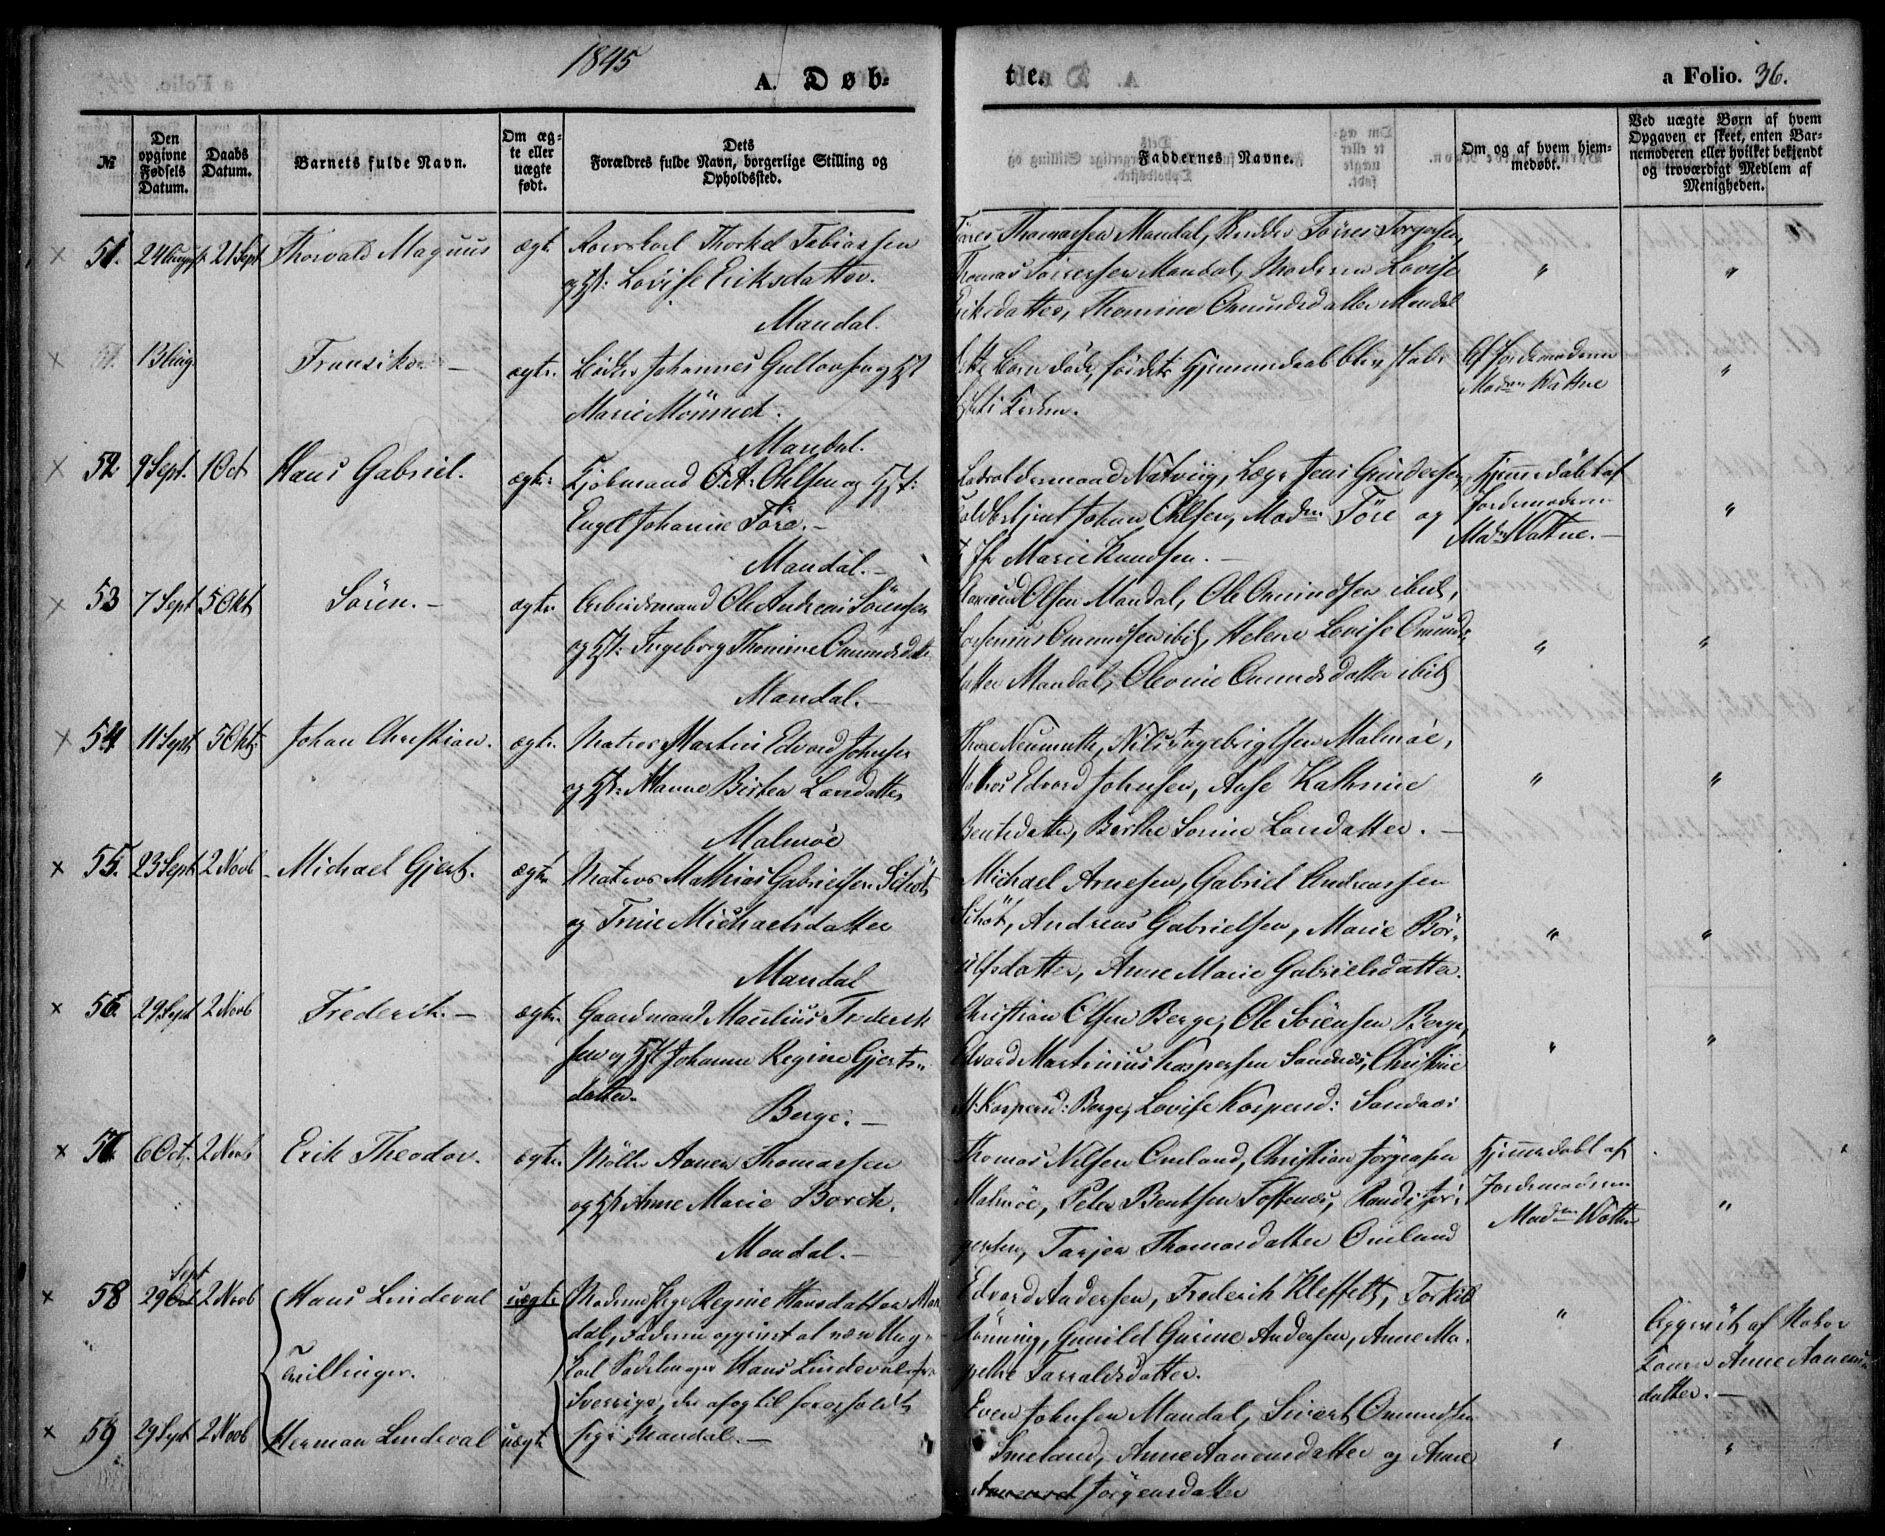 1845
A. Døb-
te.
a Folio. 36.
№
Den opgivne Fødsels Datum.
Daabs Datum.
Barnets fulde Navn.
Om ægte eller uægte født.
Dets Forældres fulde Navn, borgerlige Stilling og Opholdssted.
Faddernes Navne.
Om og af hvem hjemmedøbt.
Ved uægte Børn af hvem Opgaven er skeet, enten Barnemoderen eller hvilket bekjendt og troværdigt Medlem af Menigheden.
51. 24 August 21 Sept Thorvald Magnus ægte Thorkel Tobiassen
og Hst: Lovise Eriksdatter.
Mandal.
Thomassen Mandal, Tørres Torgersen,
Thomas Tørressen Mandal, Moderen Lovise
Eriksdatter, Thomine Omundsdatter Mandal
13 Aug Fransiska – ægte. Bødker Johannes Gullovsen og Hst
Marie Mönnich.
Mandal.
Barn døde, før dets Hjemmedaab blev stad-
fæstet i Kirken.
Af Jordemoderen
Madm Wattne
52. 9 Sept. 1 Oct Hans Gabriel. ægte. Kjøbmand O. A. Ohlsen og Hst:
Engel Johanne Töre. –
Mandal. –
Natvig, Læge Jens Gundersen,
Johan Ohlsen, Madm Töre og
Jfr Marie Knudsen. –
Hjemmedøbt af
Jordemoderen
Madm Wattne. –
53 7 Sept 5 Okt Sören. – ægte. Arbeidsmand Ole Andreas Sörensen
og Hst: Ingeborg Thomine Omundsdatt.
Mandal. –
Omund Olsen Mandal, Ole Omundsen ibid,
Omundsen ibid, Helene Lovise Omunds-
datter Mandal, Olevine Omundsdatter ibid
54 11 Sept 5 Okt. Johan Christian. ægte. Matros Martin Edvard Johnsen
og Hst: Hanne Birtea Larsdatter
Malmöe
Thore Neumuth, Nils Ingebrigtsen Malmöe,
Matros Edvard Johnsen, Aase Kathrine
Bentsdatter, Berthe Sorine Larsdatter. –
55. 23 Sept 2 Novb Michael Gjert. ægte Matros Mathias Gabrielsen Schöt
og Trine Michaelsdatter
Mandal
Michael Arnesen, Gabriel Andreassen
Schöt, Andreas Gabrielsen, Marie Bör-
ulfsdatter, Anne Marie Gabrielsdatter.
56. 29 Sept 2 Novb Frederik. – ægte. Gaardmand Maulius Frederik-
sen og Hst Johanne Regine Gjerts-
datter.
Berge. –
Christian Olsen Berge, Ole Sörensen Berge,
Edvard Martinius Kaspersen Sandnæs, Christine
M: Kaspersd: Berge, Lovise Kaspersd: Sandnæs
57. 6 Oct. 2 Novb Erik Theodor. ægte. Möller Aanen Thomassen
og Hst Anne Marie Borch.
Mandal. –
Thomas Nilsen Omland, Christian Jørgensen
Malmöe, Peter Bentsen Toftenæs, Randi Jør-
gensen, Tarjer Thomasdatter Omland
Hjemmedøbt af
Jordemoderen
Madm Wattne
58 29 Sept 2 Novb Hans Lindeval uægte. Moderen Pige Regine Hansdatter Man-
dal, Faderen opgivet at være Ung-
karl Sadelmager Hans Lindeval fra
Sverrige, der afog til skal opholdt
sig i Mandal. –
Tvillinger.
Edvard Andersen, Frederik Kleffelt, Torkild
Tönning, Gunild Gurine Andersen, Anne Ma-
grethe Tarraldsdatter.
Opgivet af Nabo-
konen Anne Aanens-
datter. –
59 29 Sept 2 Novb Herman Lindeval uægte
Even Johnsen Mandal, Sivert Omundsen
Imeland, Anne Aanensdatter og Anne
Jørgensdatter